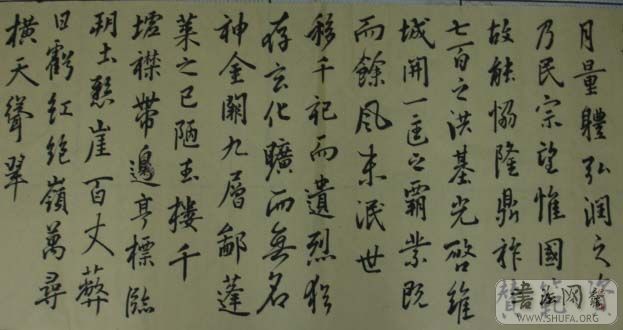 月量體弘润之
乃民宗望惟國
故能協隆鼎祚
七百之洪基光啓維
城開一匡之霸業既
而餘風未泯世
移千祀而遺烈猶
存玄化曠而無名
神金闕九層鄙蓬
萊之已陋玉樓千
墟襟帶邊亭標臨
朔土懸崖百丈蔽
日虧紅絕嶺萬尋
橫天聳翠
書法网
WWW.SHUFA.ORG